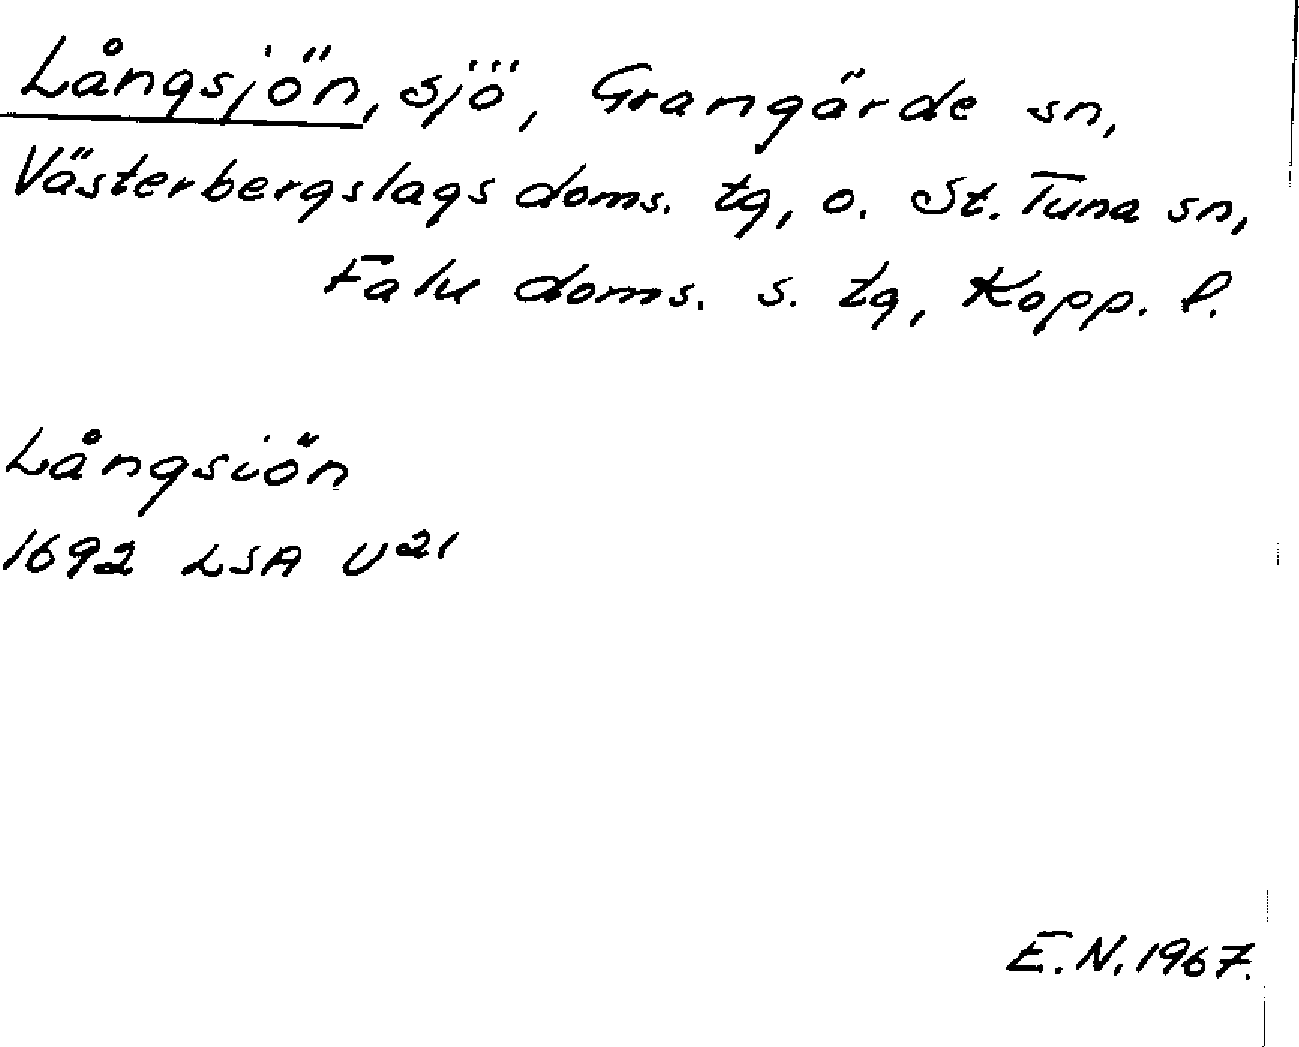 Långsjön, sjö, Grangärde sn,
Västerbergslags doms. tg, o. St. Tuna sn,
Falu doms. s. tg, Kopp. l.
Långsiön
1692 LSA U21
E.N. 1967.